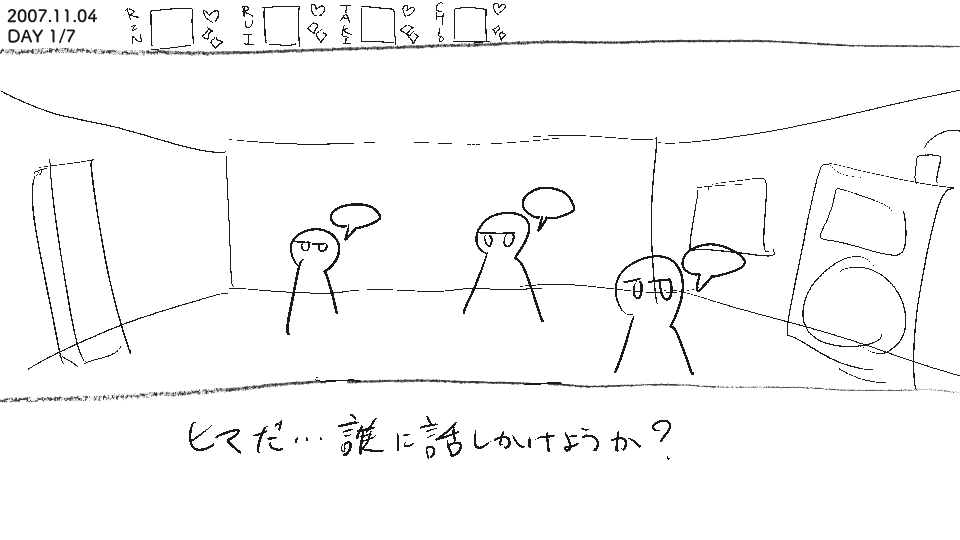 2007.11.04
DAY 1/7
RIN
RUI
TAKI
CHIO
ヒマだ…誰に話しかけようか？